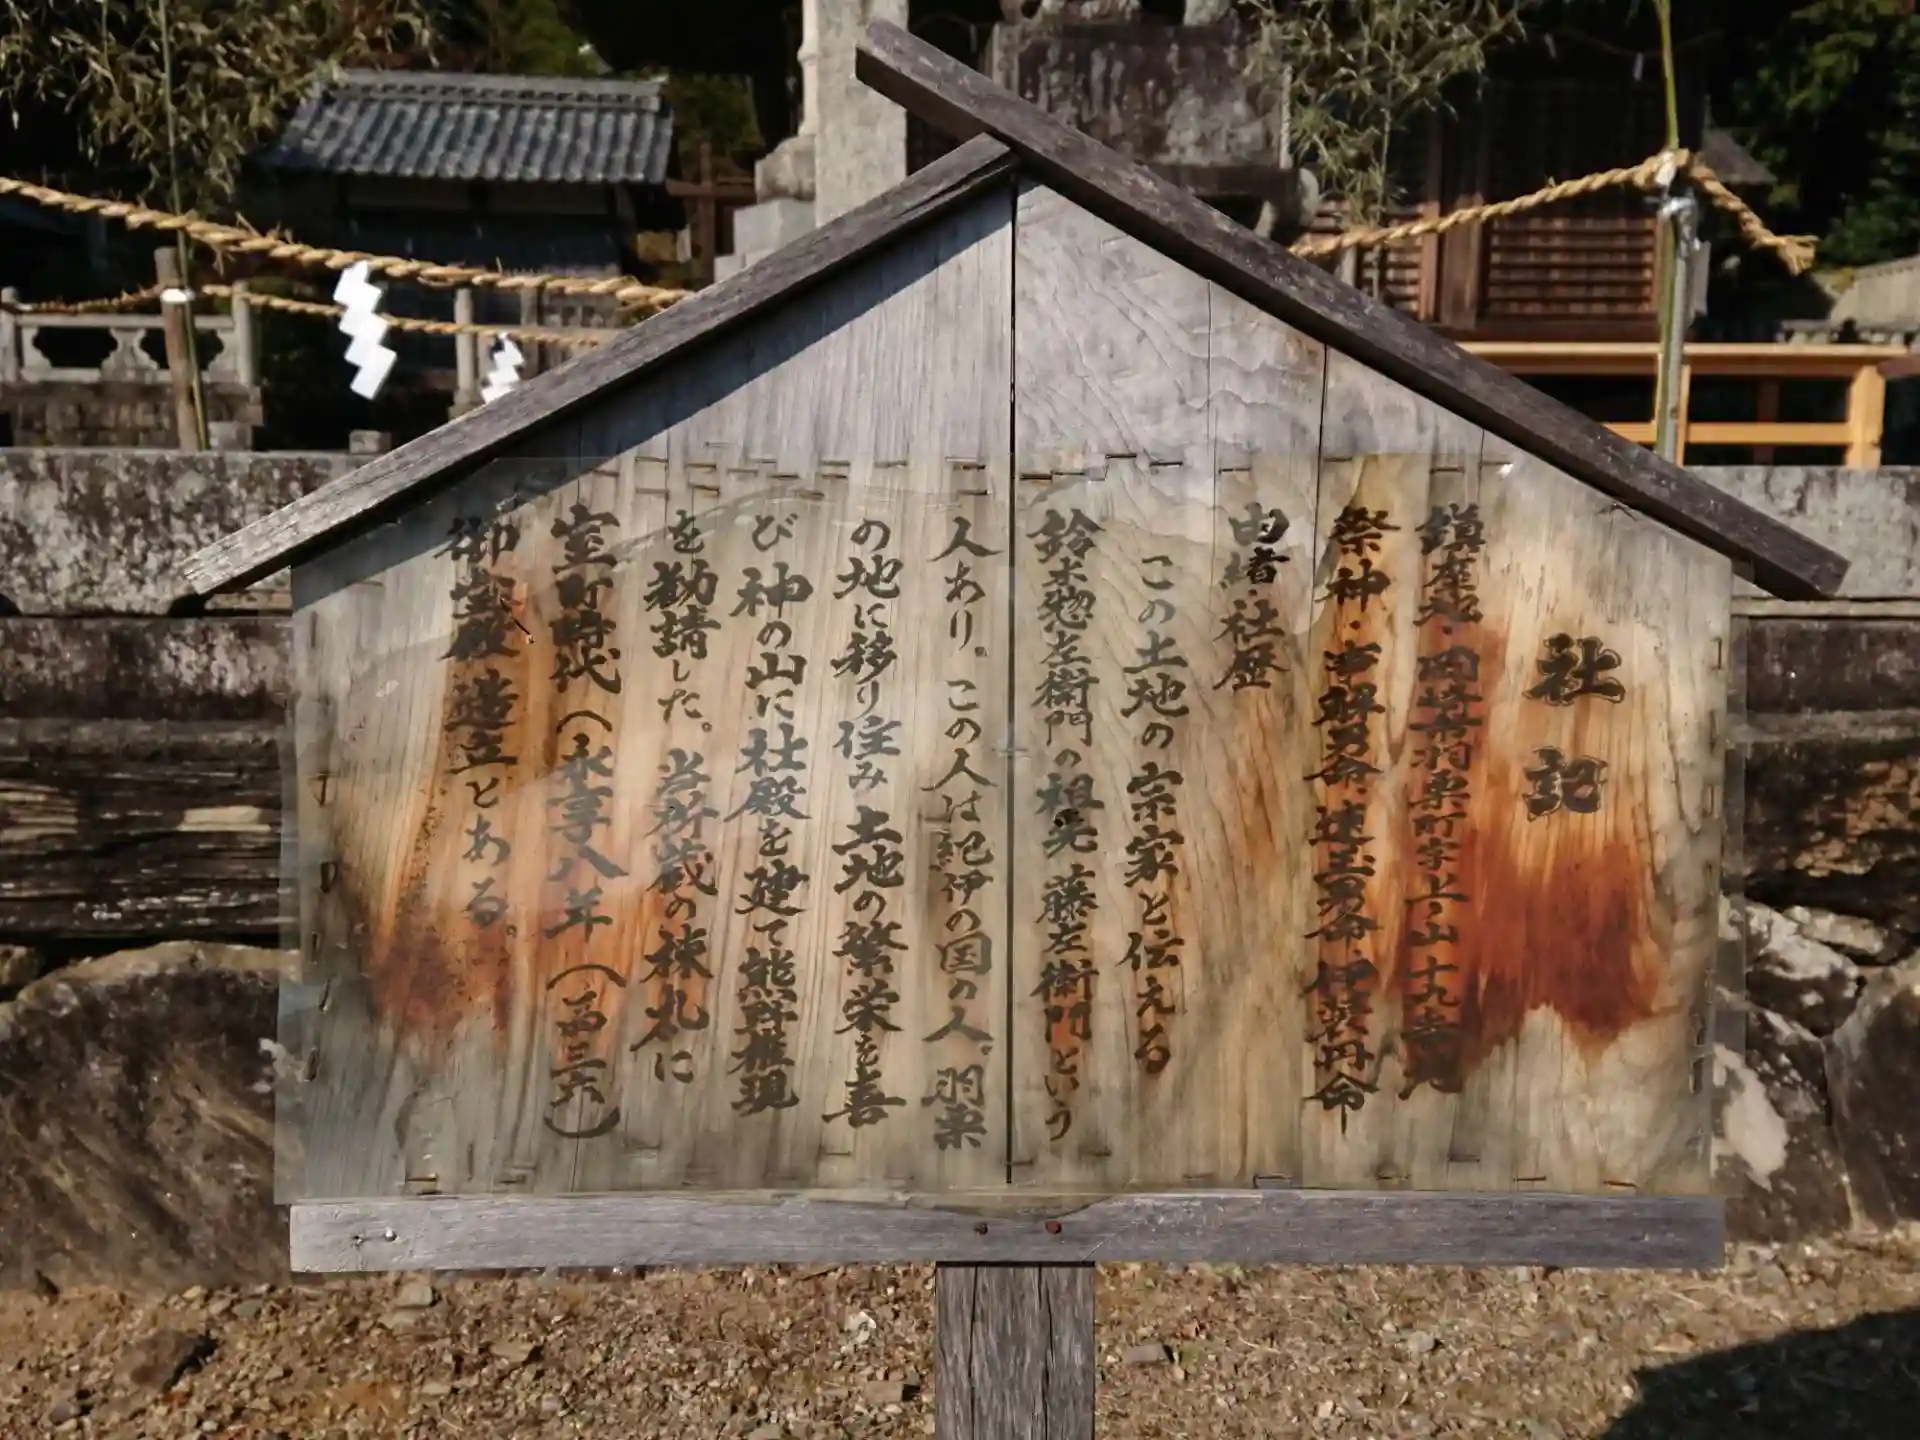 社記
鎮座地・岡崎市羽栗町字上ノ山十九番地
祭神・事解男命・速玉男命・伊弉冊命
由緒・社歴
この土地の宗家と伝える
鈴木惣左衛門の祖先藤左衛門という
人あり。この人は紀伊の国の人。羽栗
の地に移り住み土地の繁栄を喜
び神の山に社殿を建て熊野権現
を勧請した。当所蔵の棟札に
室町時代(永享八年(一四三六)
御宝殿造立とある。